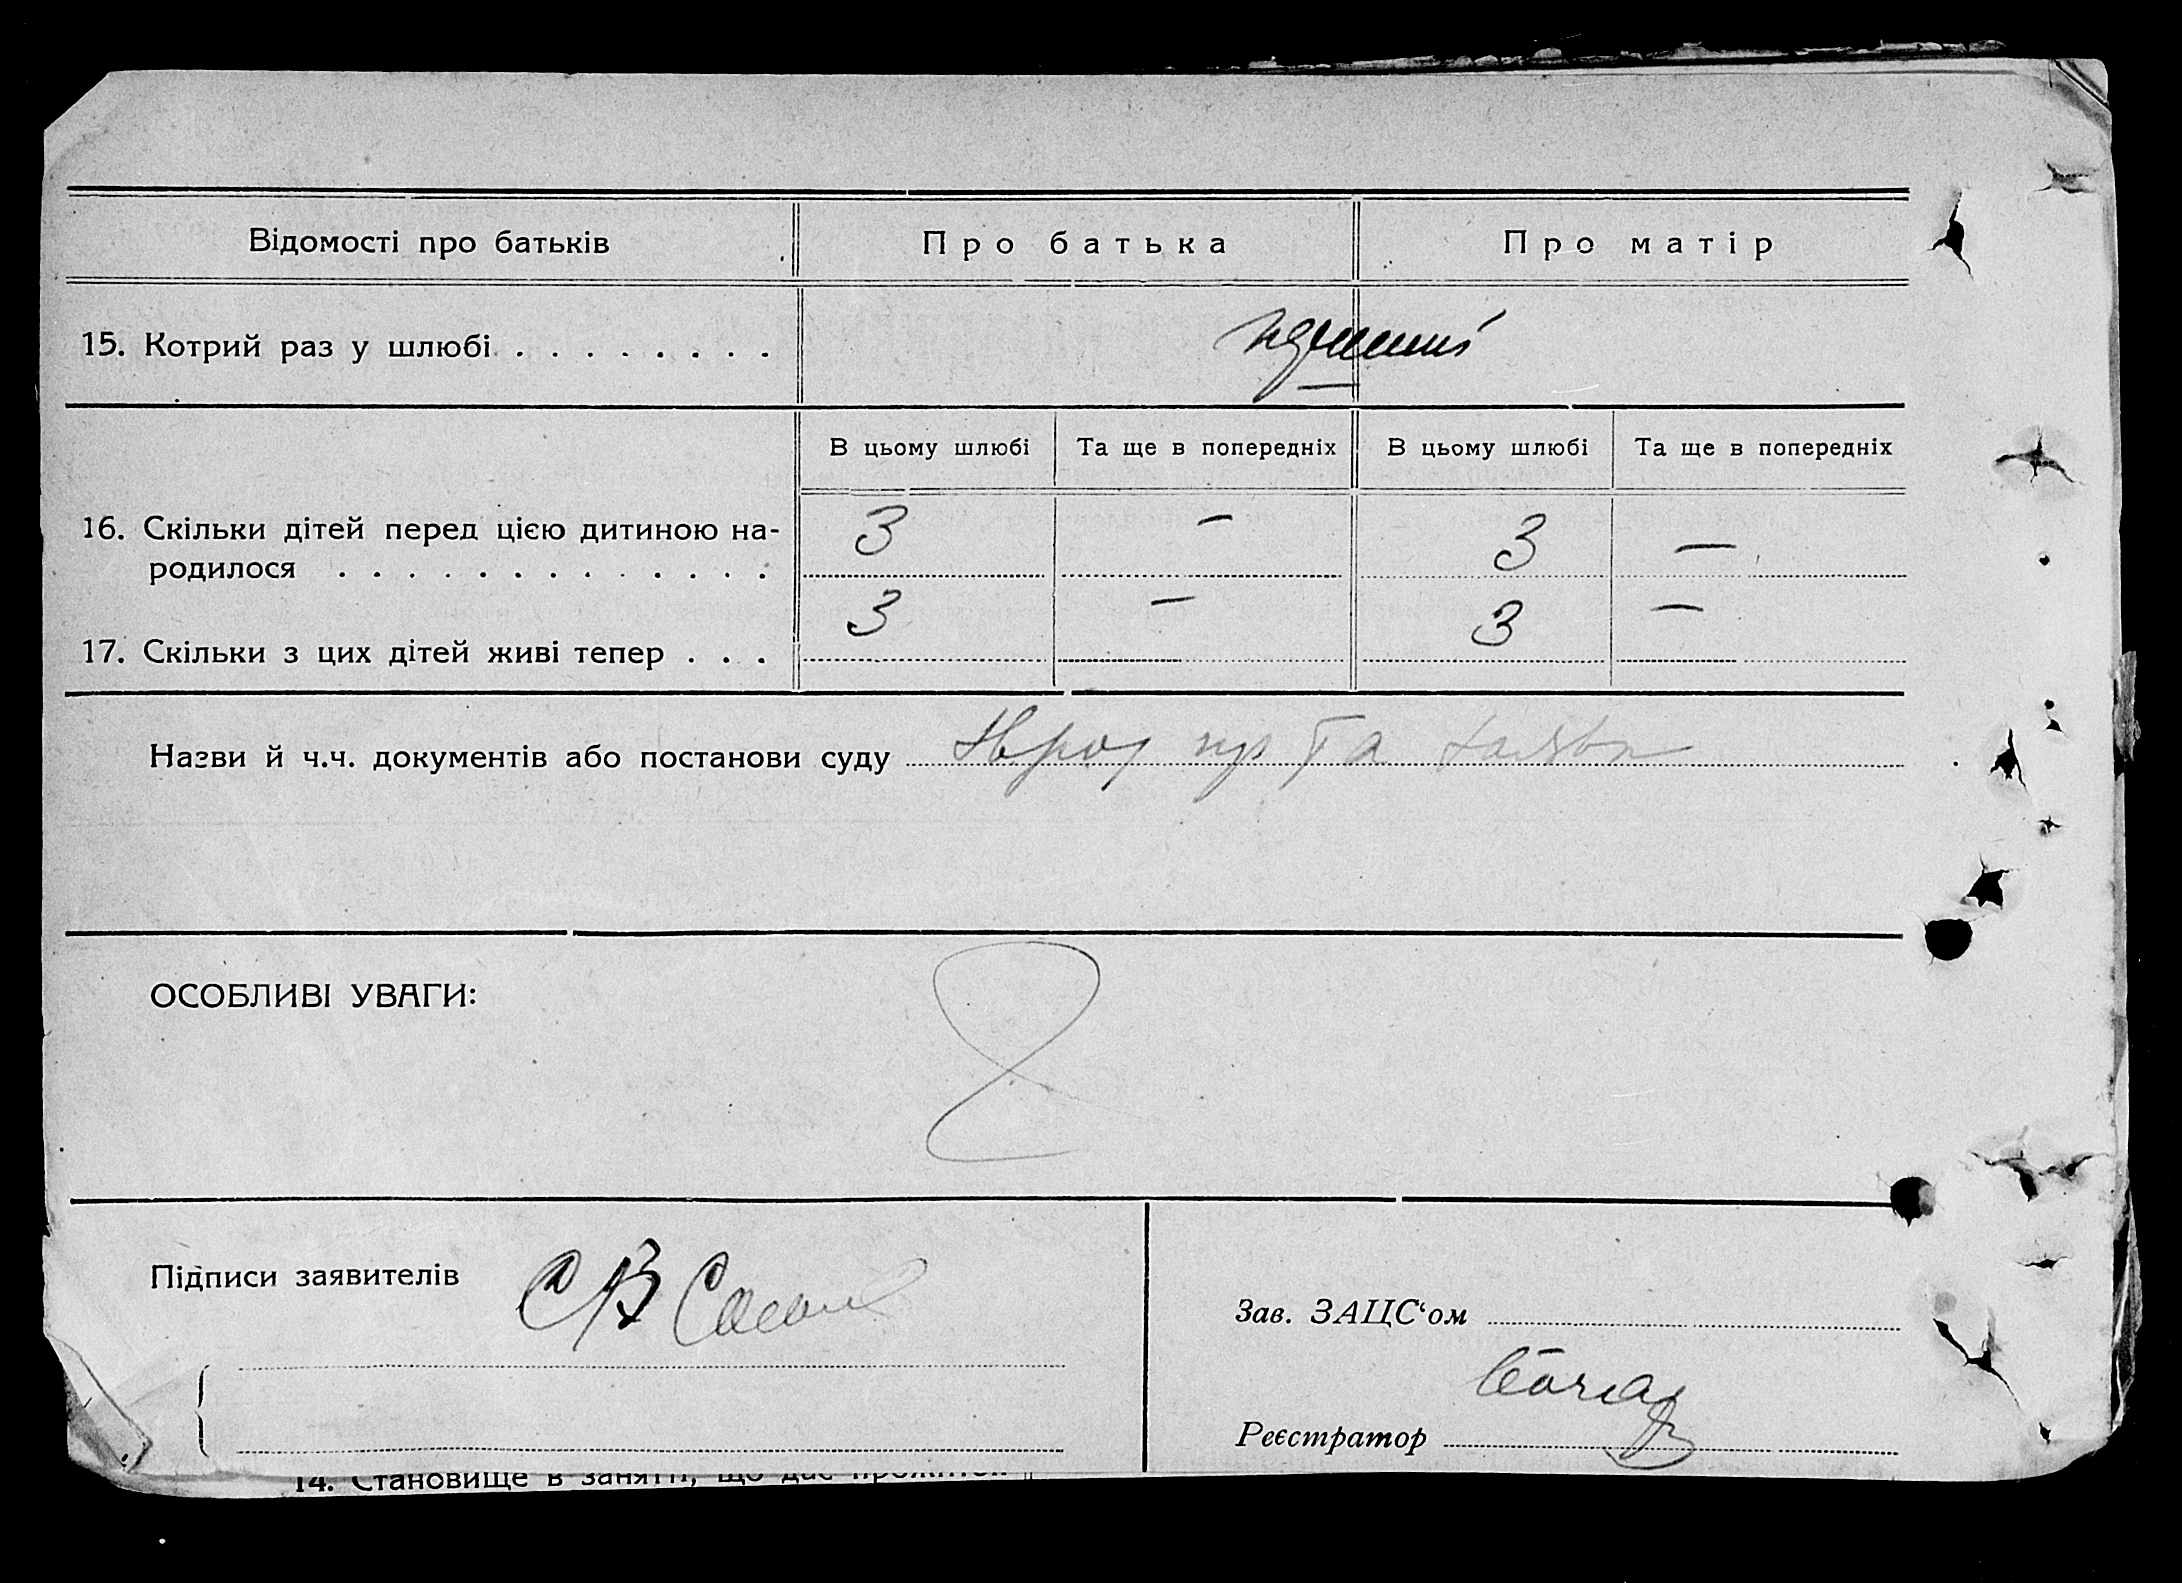 Відомості про батьків Про батька Про матір
15. Котрий раз у шлюбі . . . . . . . .
В цьому шлюбі Та ще в попередніх В цьому шлюбі Та ще в попередніх
16. Скільки дітей перед цією дитиною на- 3 – 3 –
родилося . . . . . . . . . . . . .
17. Скільки з цих дітей живі тепер . . . 3 – 3 –
Назви й ч.ч. документів або постанови суду та
ОСОБЛИВІ УВАГИ:
Підписи заявителів
Зав. ЗАЦС‘ом
Реєстратор
14. Становище в занятті, що дає прожиток